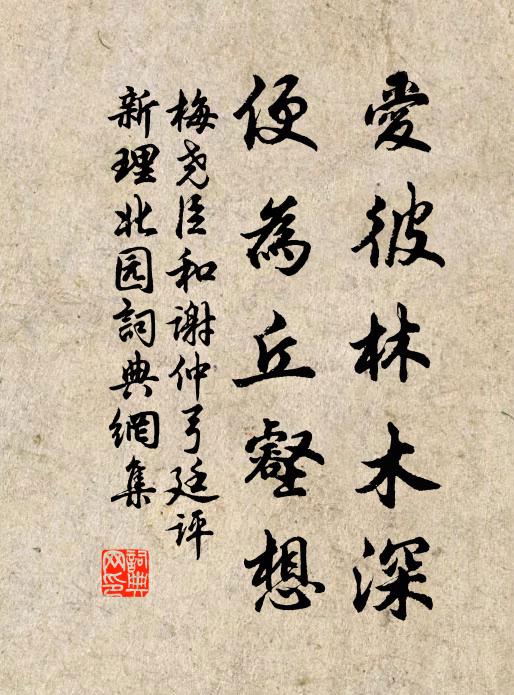 愛彼林木深
便為丘壑想
梅尧臣和谢仲弓廷评
新理北园詞典網集
詞典網印